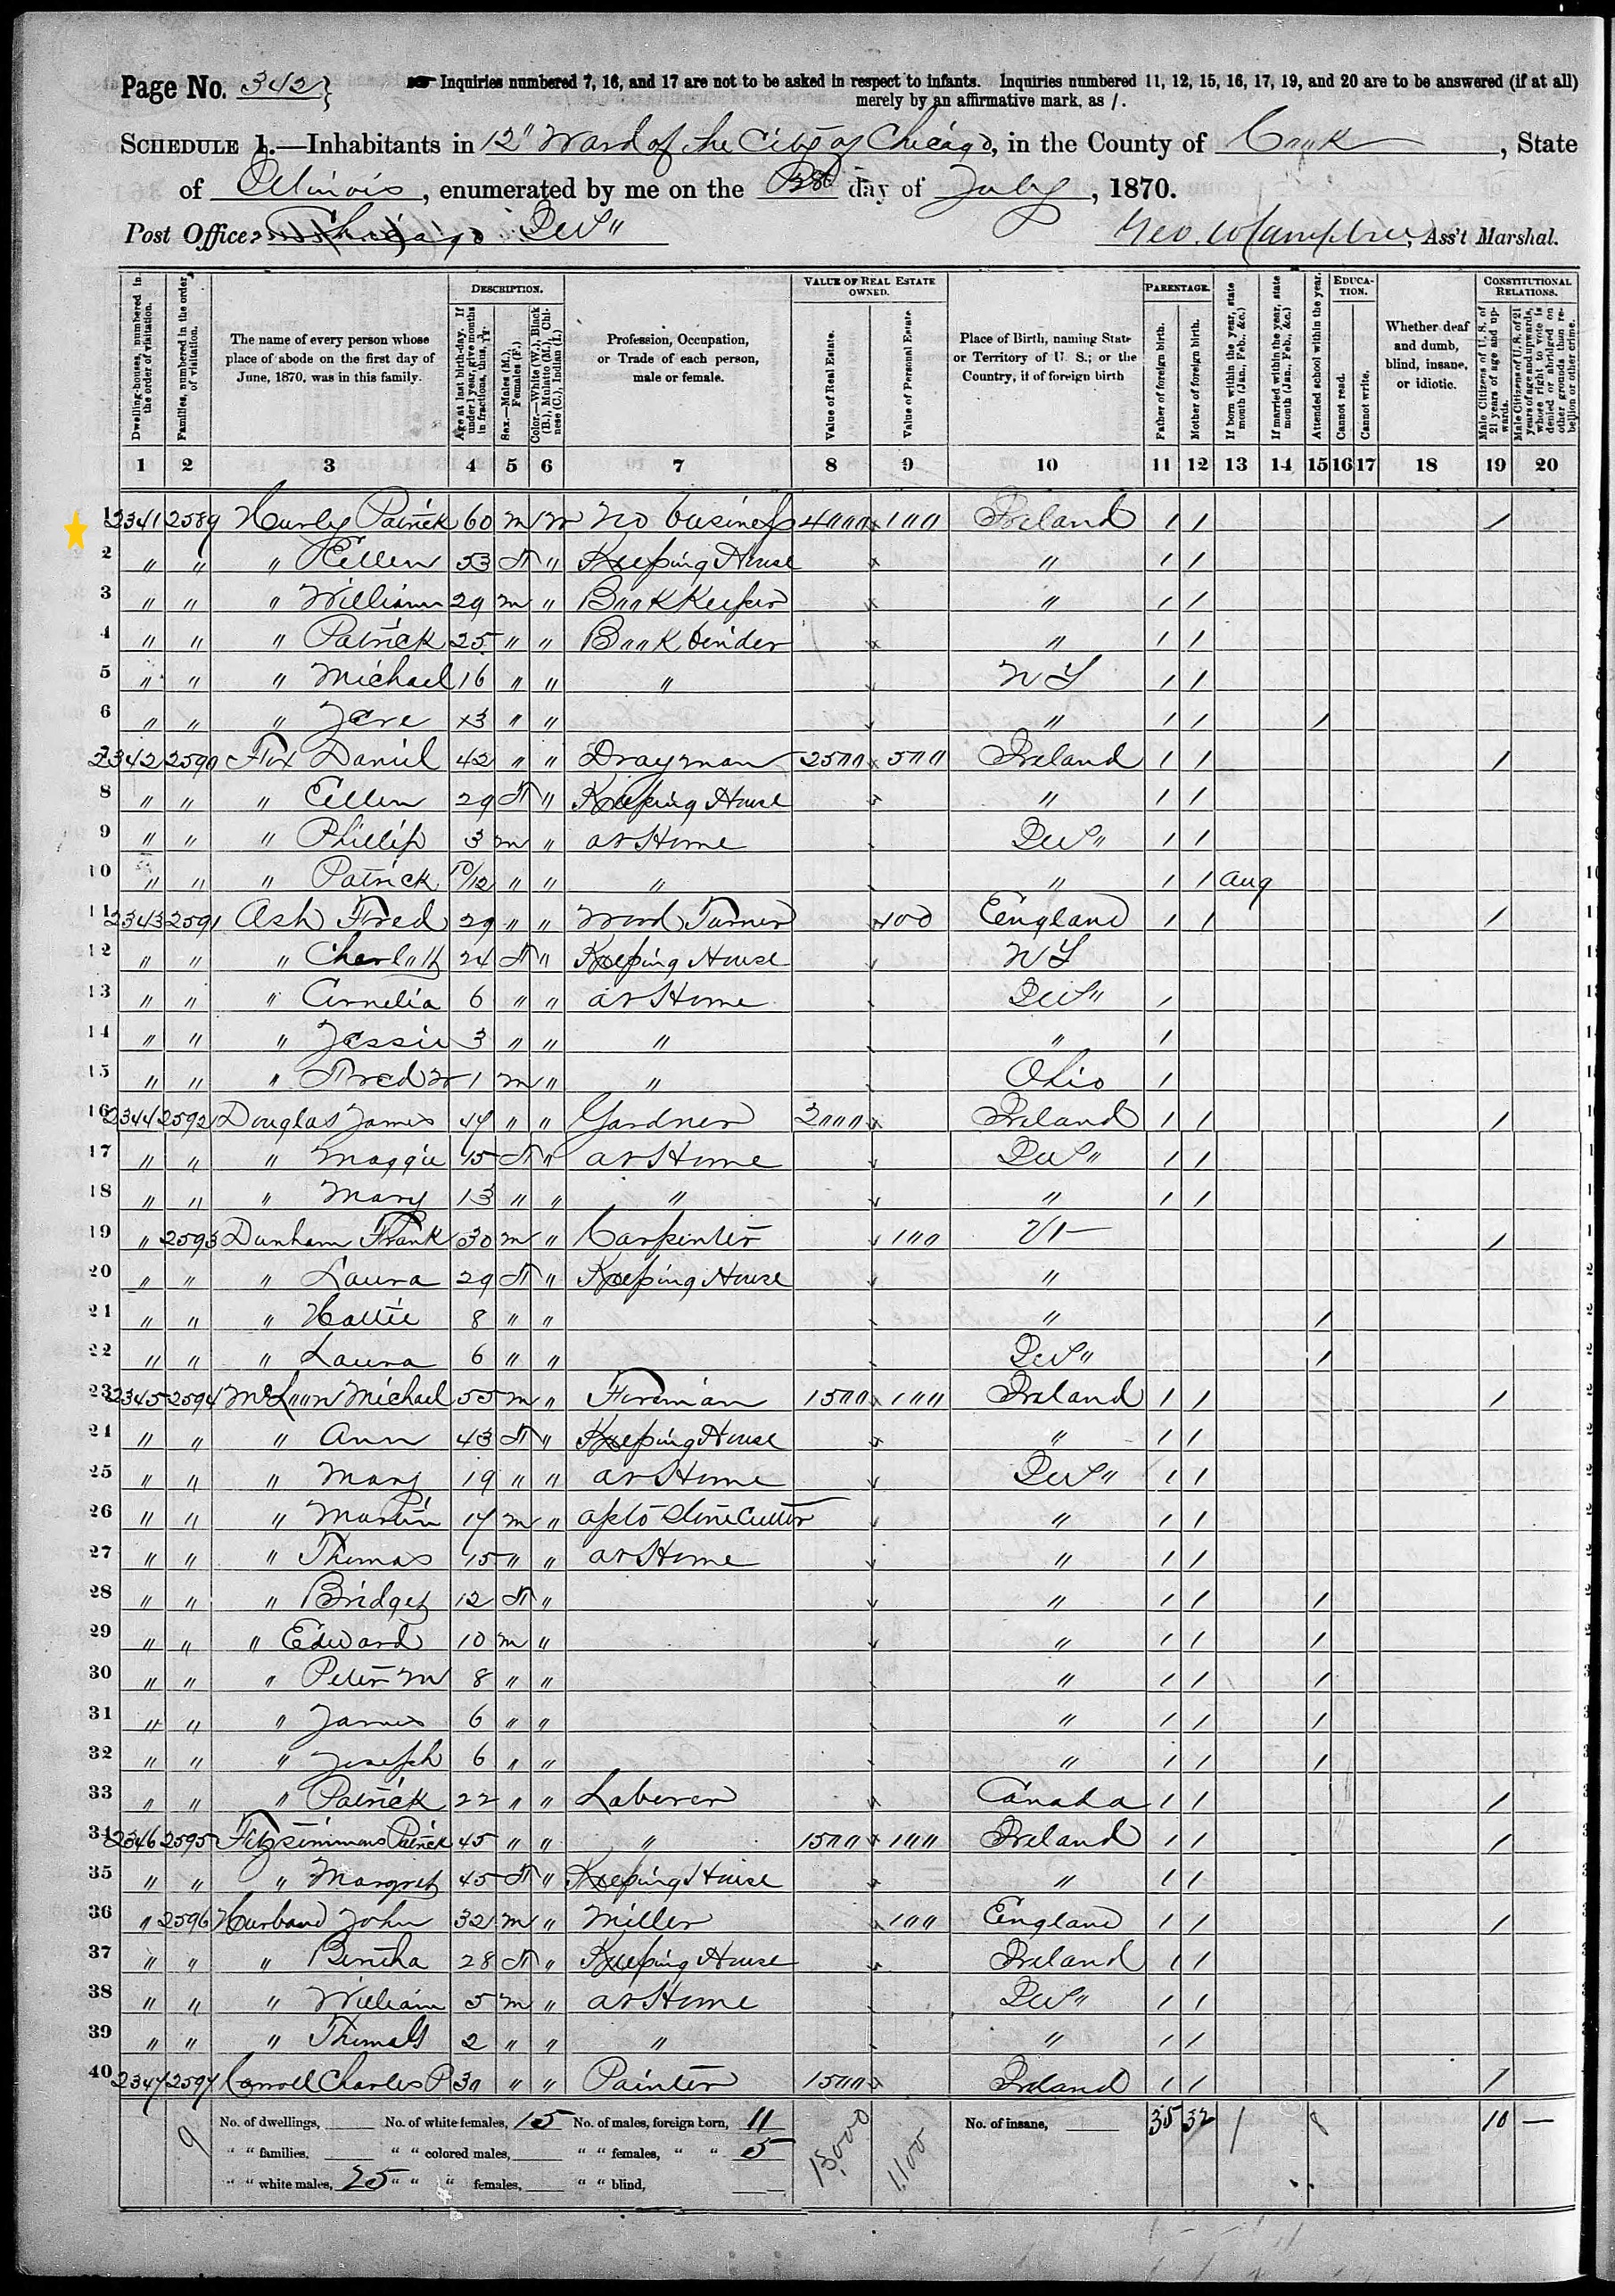 Page No. 342 } Inquiries numbered 7, 16, and 17 are not to be asked in respect to infants. Inquiries numbered 11, 12, 15, 16, 17, 19, and 20 are to be answered (if at all)
merely by an affirmative mark, as /.
SCHEDULE 1.—Inhabitants in 12" Ward of the City of Chicago, in the County of Cook, State
of Illinois, enumerated by me on the day of July, 1870.
Post Office: Chicago Ills" Geo., Ass't Marshal.
DESCRIPTION. VALUE OF REAL ESTATE OWNED. PARENTAGE. EDUCATION. CONSTITUTIONAL RELATIONS.
Dwelling-houses, numbered in the order of visitation. Families, numbered in the order of visitation. The name of every person whose place of abode on the first day of June, 1870, was in this family. Age at last birth-day. If under 1 year, give months in fractions, thus, Sex.—Males (M.), Females (F.) Color.—White (W.), Black (B.), Mulatto (M.), Chinese (C.), Indian (I.) Profession, Occupation, or Trade of each person, male or female. Value of Real Estate. Value of Personal Estate. Place of Birth, naming State or Territory of U. S.; or the Country, if of foreign birth Father of foreign birth. Mother of foreign birth. If born within the year, state month (Jan., Feb., &c.) If married within the year, state month (Jan., Feb., &c.) Attended school within the year. Cannot read. Cannot write. Whether deaf and dumb, blind, insane, or idiotic. Male Citizens of U. S. of 21 years of age and upwards. Male Citizens of U. S. of 21 years of age and upwards, whose right to vote is denied or abridged on other grounds than rebellion or other crime.
1 2 3 4 5 6 7 8 9 10 11 12 13 14 15 16 17 18 19 20
1 2341 2589 Hurley Patrick 60 m w no business 4000 x 100 Ireland / / /
2 " " " Ellen 53 F " Keeping House x " / /
3 " " " William 29 m " BookKeeper x " / /
4 " " " Patrick 25 " " Book binder x " / /
5 " " " Michael 16 " " " N Y / /
6 " " " 13 " " " / / /
7 2342 2590 Fox Daniel 42 " " Drayman 2500 x 500 Ireland / / /
8 " " " Ellen 29 F " Keeping House " / /
9 " " " Phillip 3 m " at Home Ills " / /
10 " " " Patrick 10/12 " " " " / / Aug
11 2343 2591 Ash Fred 29 " " Wood Turner 400 England / / /
12 " " " 24 F " Keeping House N Y
13 " " " Cornelia 6 " " at Home Ills " /
14 " " " Jessie 3 " " " " /
15 " " " Fred W 1 m " " Ohio /
16 2344 2592 Douglas James 47 " " Gardner 3000 x Ireland / / /
17 " " " Maggie 15 F " at Home Ills " / /
18 " " " Mary 13 " " " " / /
19 " 2593 Dunham Frank 30 m " Carpenter 100 Vt /
20 " " " Laura 29 F " Keeping House "
21 " " " Hattie 8 " " " /
22 " " " Laura 6 " " Ills " /
23 2345 2594 Michael 55 m " Foreman 1500 x 100 Ireland / / /
24 " " " Ann 43 F " Keeping House " / /
25 " " " Mary 19 " " at Home Ills " / /
26 " " " Martin 17 m " ap to Stone Cutter " / /
27 " " " Thomas 15 " " at Home " / /
28 " " " Bridget 12 F " " / / /
29 " " " Edward 10 m " " / / /
30 " " " Peter M 8 " " " / / /
31 " " " James 6 " " " / / /
32 " " " Joseph 6 " " " / / /
33 " " " Patrick 22 " " Laborer Canada / / /
34 2346 2595 Fitzsimmons Patrick 45 " " " 1500 x 100 Ireland / / /
35 " " " Margret 45 F " Keeping House " / /
36 " 2596 Harband John 32 m " Miller 100 England / / /
37 " " " Bertha 28 F " Keeping House Ireland / /
38 " " " William 5 m " at Home Ills " / /
39 " " " Thomas 2 " " " " / /
40 2347 2597 Carroll Charles P 30 " " Painter 1500 x Ireland / / /
9 No. of dwellings, No. of white females, 15 No. of males, foreign born, 11 13,000 1,100 No. of insane, 35 32 / 8 10 —
" " families, " " colored males, " " females, " " 5
" " white males, 25 " " " females, " " blind,